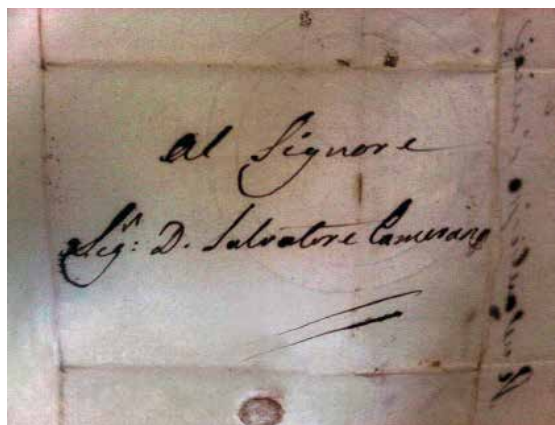 Al Signore
Sig.r: D. Salvatore Camerano